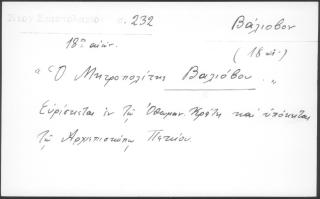 σ. 232
Βάλιοβον
18ος αιών.
(18 αἰ.)
"Ὁ Μητροπολίτης Βαλιόβου."
Εὑρίσκεται ἐν τῷ Ὀθωμαν. Κράτει καὶ ὑπόκειται
τῷ Ἀρχιεπισκόπῳ Πεκίου.